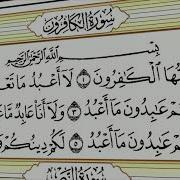 سُورَةُ الْكَافِرُونَ
بِسْمِ اللَّهِ الرَّحْمَٰنِ الرَّحِيمِ
هَا الْكَٰفِرُونَ ١ لَا أَعْبُدُ مَا تَعْ
مْ عَٰبِدُونَ مَا أَعْبُدُ ٣ وَلَا أَنَا عَابِدٌ مَّا عَ
مْ عَٰبِدُونَ مَا أَعْبُدُ ٥ لَكُمْ دِينُكُمْ وَ
سُورَةُ النَّصْرِ